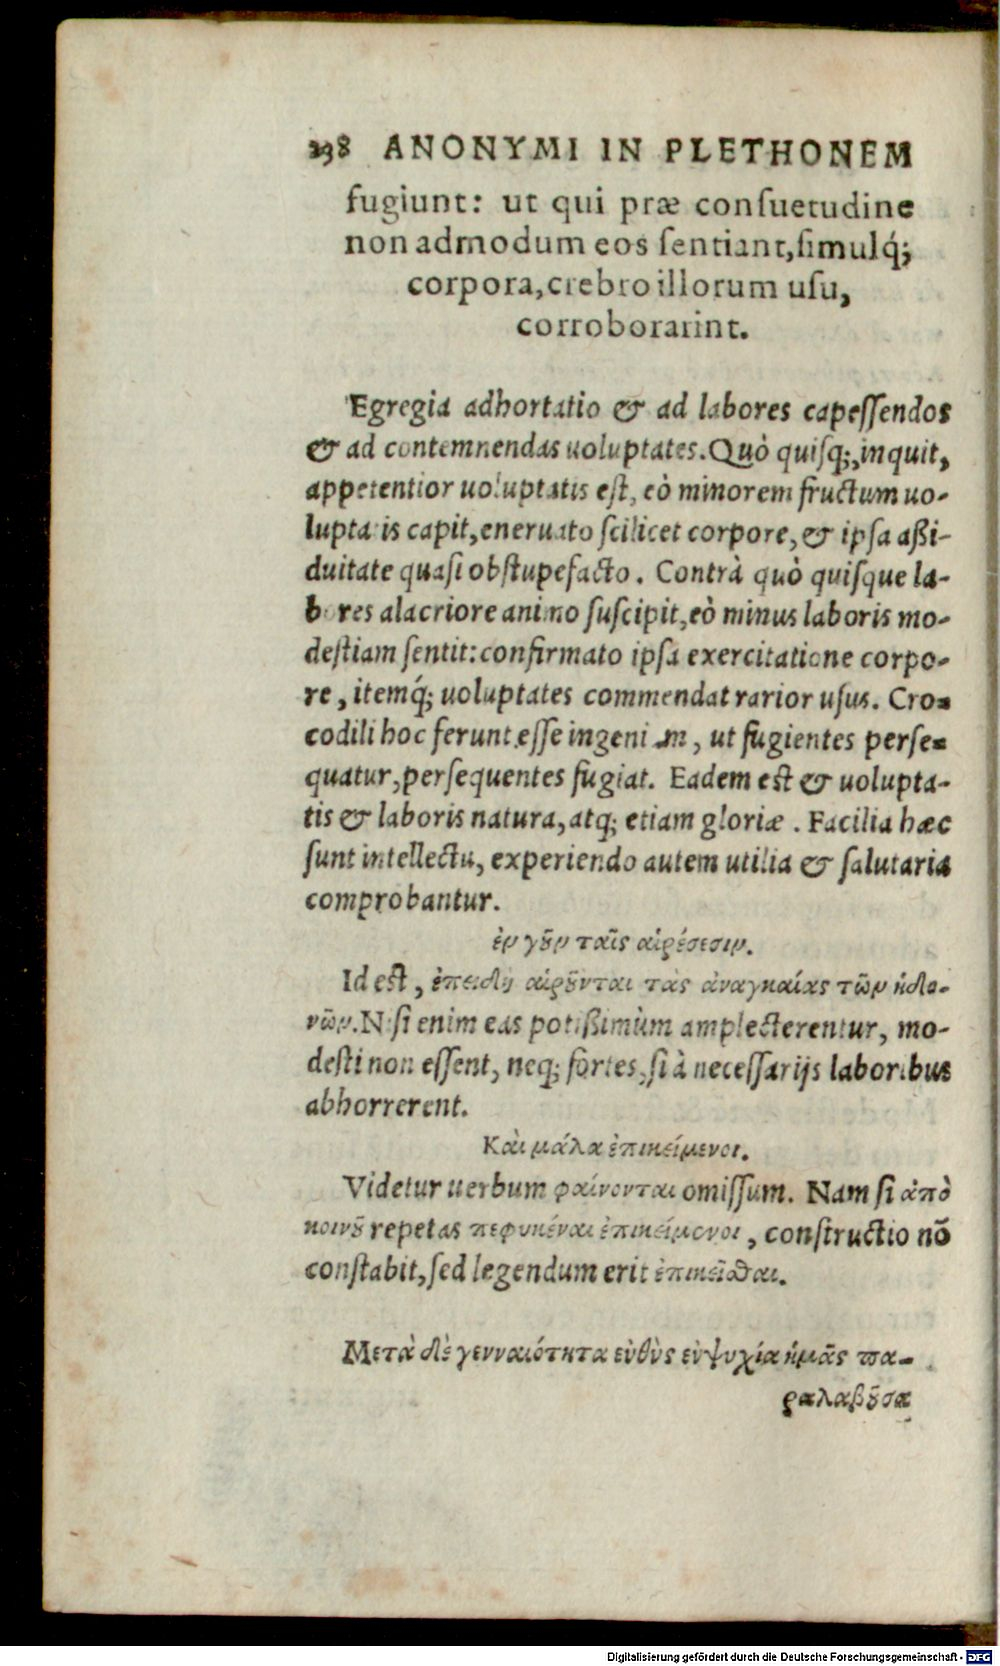 238 ANONYMI IN PLETHONEM
fugiunt: ut qui præ consuetudine
non admodum eos sentiant, simulq́;
corpora, crebro illorum usu,
corroborarint.
Egregia adhortatio & ad labores capessendos
& ad contemnendas uoluptates. Quò quisq;, inquit,
appetentior uoluptatis est, eò minorem fructum uo-
luptatis capit, eneruato scilicet corpore, & ipsa aßi-
duitate quasi obstupefacto. Contrà quò quisque la-
bores alacriore animo suscipit, eò minus laboris mo-
destiam sentit: confirmato ipsa exercitatione corpo-
re, itemq́; uoluptates commendat rarior usus. Cro-
codili hoc ferunt esse ingenium, ut fugientes perse-
quatur, persequentes fugiat. Eadem est & uolupta-
tis & laboris natura, atq; etiam gloriæ. Facilia hæc
sunt intellectu, experiendo autem utilia & salutaria
comprobantur.
ἐν γοῦν ταῖς αἱρέσεσιν.
Id est, ἐπειδὴ αἱροῦνται τὰς ἀναγκαίας τῶν ἡδο-
νῶν. Nisi enim eas potißimùm amplecterentur, mo-
desti non essent, neq; fortes, si à necessarijs laboribus
abhorrerent.
Καὶ μάλα ἐπικείμενοι.
Videtur uerbum φαίνονται omissum. Nam si ἀπὸ
κοινοῦ repetas πεφυκέναι ἐπικείμενοι, constructio nõ
constabit, sed legendum erit ἐπικεῖσθαι.
Μετὰ δὲ γενναιότητα εὐθὺς εὐψυχία ἡμᾶς πα-
ραλαβοῦσα
Digitalisierung gefördert durch die Deutsche Forschungsgemeinschaft - DFG